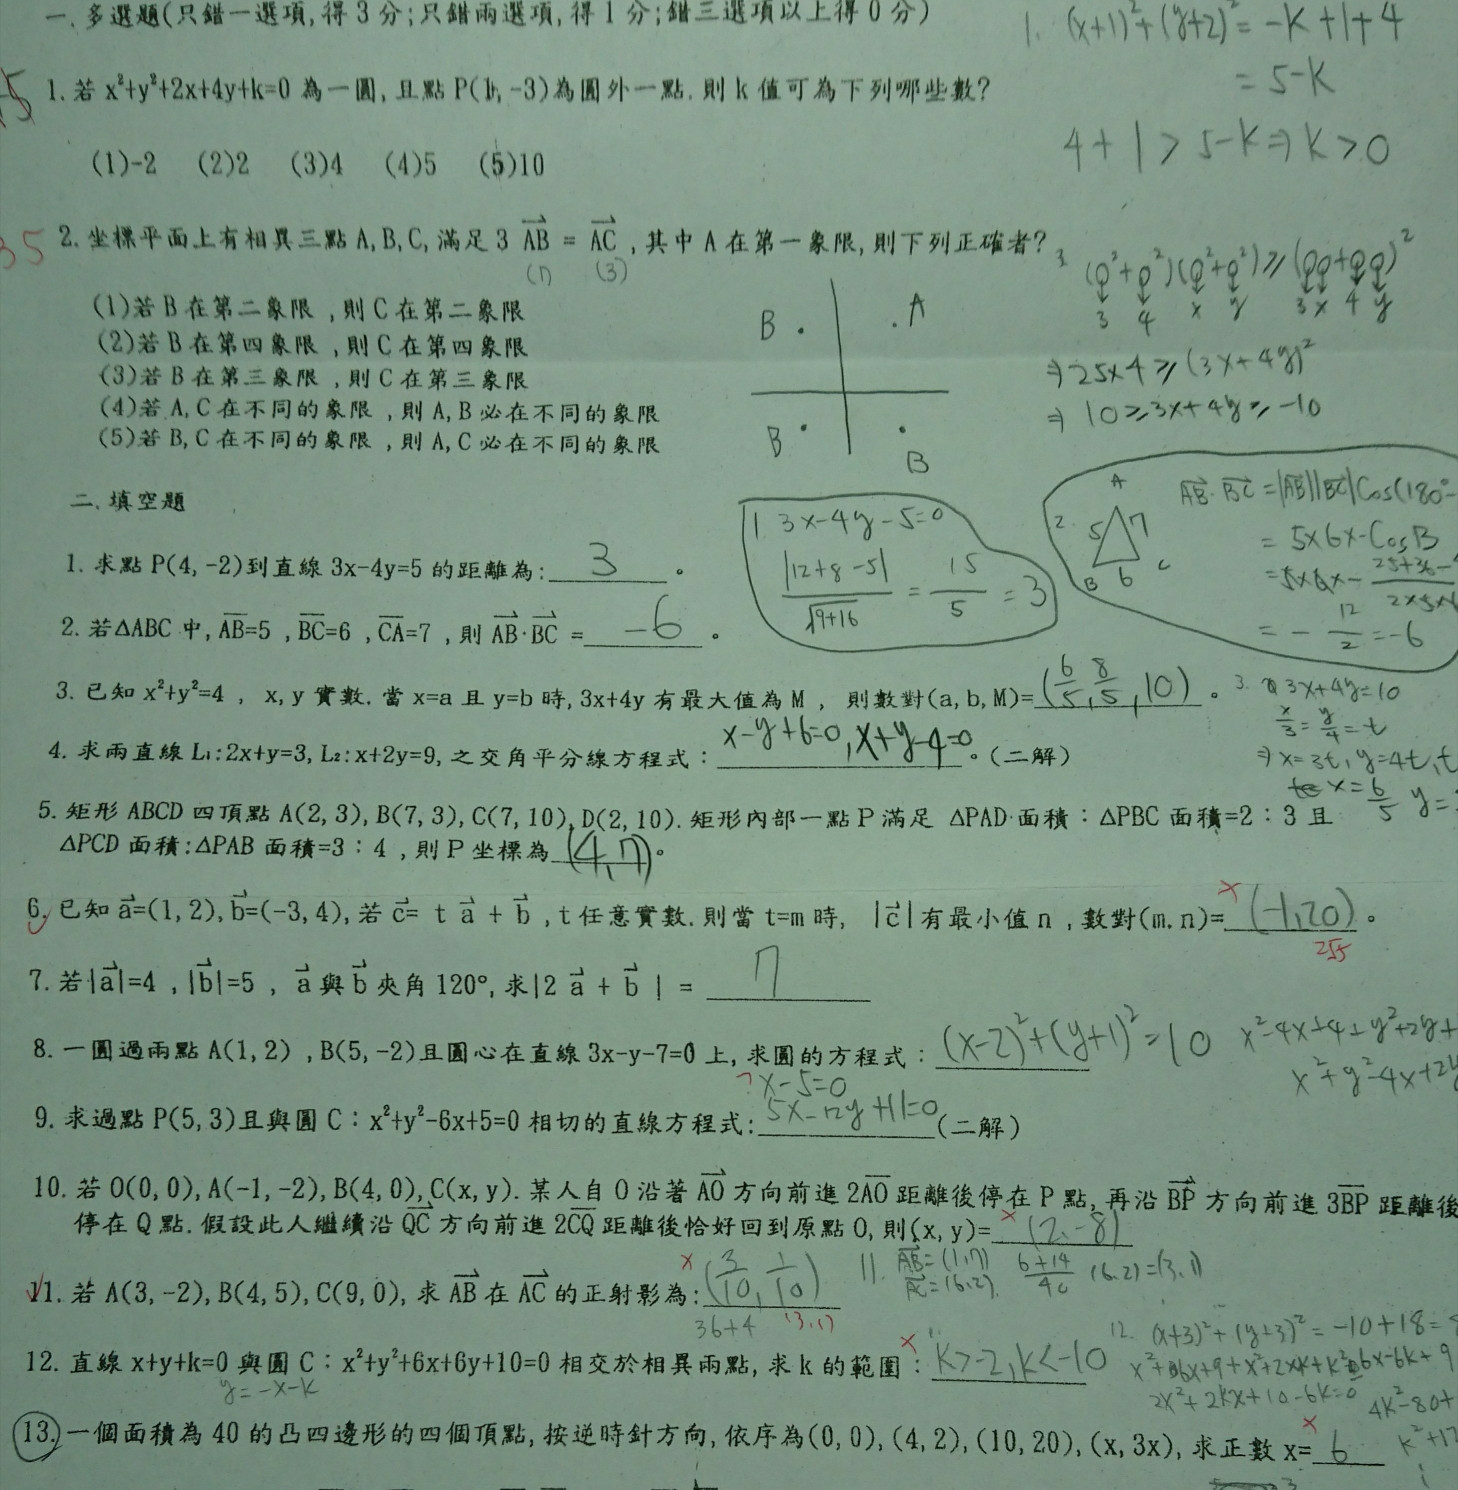 一.多選題(只錯一選項,得3分;只錯兩選項,得1分;錯三選項以上得0分)
1. (x+1)²+(y+2)²=-k+1+4
= 5-k
4+1>5-k⇒k>0
1.若 x²+y²+2x+4y+k=0 為一圓,且點 P(1,-3)為圓外一點.則 k 值可為下列哪些數?
(1)-2 (2)2 (3)4 (4)5 (5)10
35
2.坐標平面上有相異三點 A,B,C,滿足 3 AB = AC ,其中 A 在第一象限,則下列正確者?
(1) (3)
(1)若 B 在第二象限 ,則 C 在第二象限
(2)若 B 在第四象限 ,則 C 在第四象限
(3)若 B 在第三象限 ,則 C 在第三象限
(4)若 A,C 在不同的象限 ,則 A,B 必在不同的象限
(5)若 B,C 在不同的象限 ,則 A,C 必在不同的象限
B A
B B
3 4 x y 3x 4y
⇒25×4≥(3x+4y)²
⇒ 10≥3x+4y≥-10
二.填空題
1. 3x-4y-5=0
|12+8-5| / √9+16 = 15/5 = 3
2. A 5 7 B 6 C
AB·BC=|AB||BC|Cos(180°-
= 5×6×-CosB
= -12/2 = -6
1.求點 P(4,-2)到直線 3x-4y=5 的距離為:3。
2.若△ABC 中,AB=5 ,BC=6 ,CA=7 ,則 AB·BC =-6。
3.已知 x²+y²=4 , x,y 實數.當 x=a 且 y=b 時,3x+4y 有最大值為 M , 則數對(a,b,M)=(6/5,8/5,10)。
3. 3x+4y=10
x/3=y/4=t
⇒x=3t,y=4t,t
x=6/5 y=
4.求兩直線 L₁:2x+y=3,L₂:x+2y=9,之交角平分線方程式:x-y+6=0,x+y-4=0。(二解)
5.矩形 ABCD 四頂點 A(2,3),B(7,3),C(7,10),D(2,10).矩形內部一點 P 滿足 △PAD 面積:△PBC 面積=2:3 且
△PCD 面積:△PAB 面積=3:4 ,則 P 坐標為(4,7)。
6.已知 a=(1,2),b=(-3,4),若 c= t a + b ,t 任意實數.則當 t=m 時, |c|有最小值 n ,數對(m.n)=(-1,20)。
2√5
7.若|a|=4 ,|b|=5 , a 與 b 夾角 120°,求|2 a + b | = 7
8.一圓過兩點 A(1,2) ,B(5,-2)且圓心在直線 3x-y-7=0 上,求圓的方程式:(x-2)²+(y+1)²=10
x²-4x+4+y²+2y+
x²+y²-4x+2y
x-5=0
9.求過點 P(5,3)且與圓 C:x²+y²-6x+5=0 相切的直線方程式:5x-12y+11=0(二解)
10.若 O(0,0),A(-1,-2),B(4,0),C(x,y).某人自 O 沿著 AO 方向前進 2AO 距離後停在 P 點,再沿 BP 方向前進 3BP 距離後
停在 Q 點.假設此人繼續沿 QC 方向前進 2CQ 距離後恰好回到原點 O,則(x,y)=(2,-8)
11. AB=(1,7)
AC=(6,2) 6+14/40 (6,2)=(3,1)
11.若 A(3,-2),B(4,5),C(9,0),求 AB 在 AC 的正射影為:(3/10,1/10)
36+4 (3,1)
12. (x+3)²+(y+3)²=-10+18=8
12.直線 x+y+k=0 與圓 C:x²+y²+6x+6y+10=0 相交於相異兩點,求 k 的範圍:k>-2,k<-10
y=-x-k
2x²+2kx+10-6k=0
4k²-80+
13.一個面積為 40 的凸四邊形的四個頂點,按逆時針方向,依序為(0,0),(4,2),(10,20),(x,3x),求正數 x=6